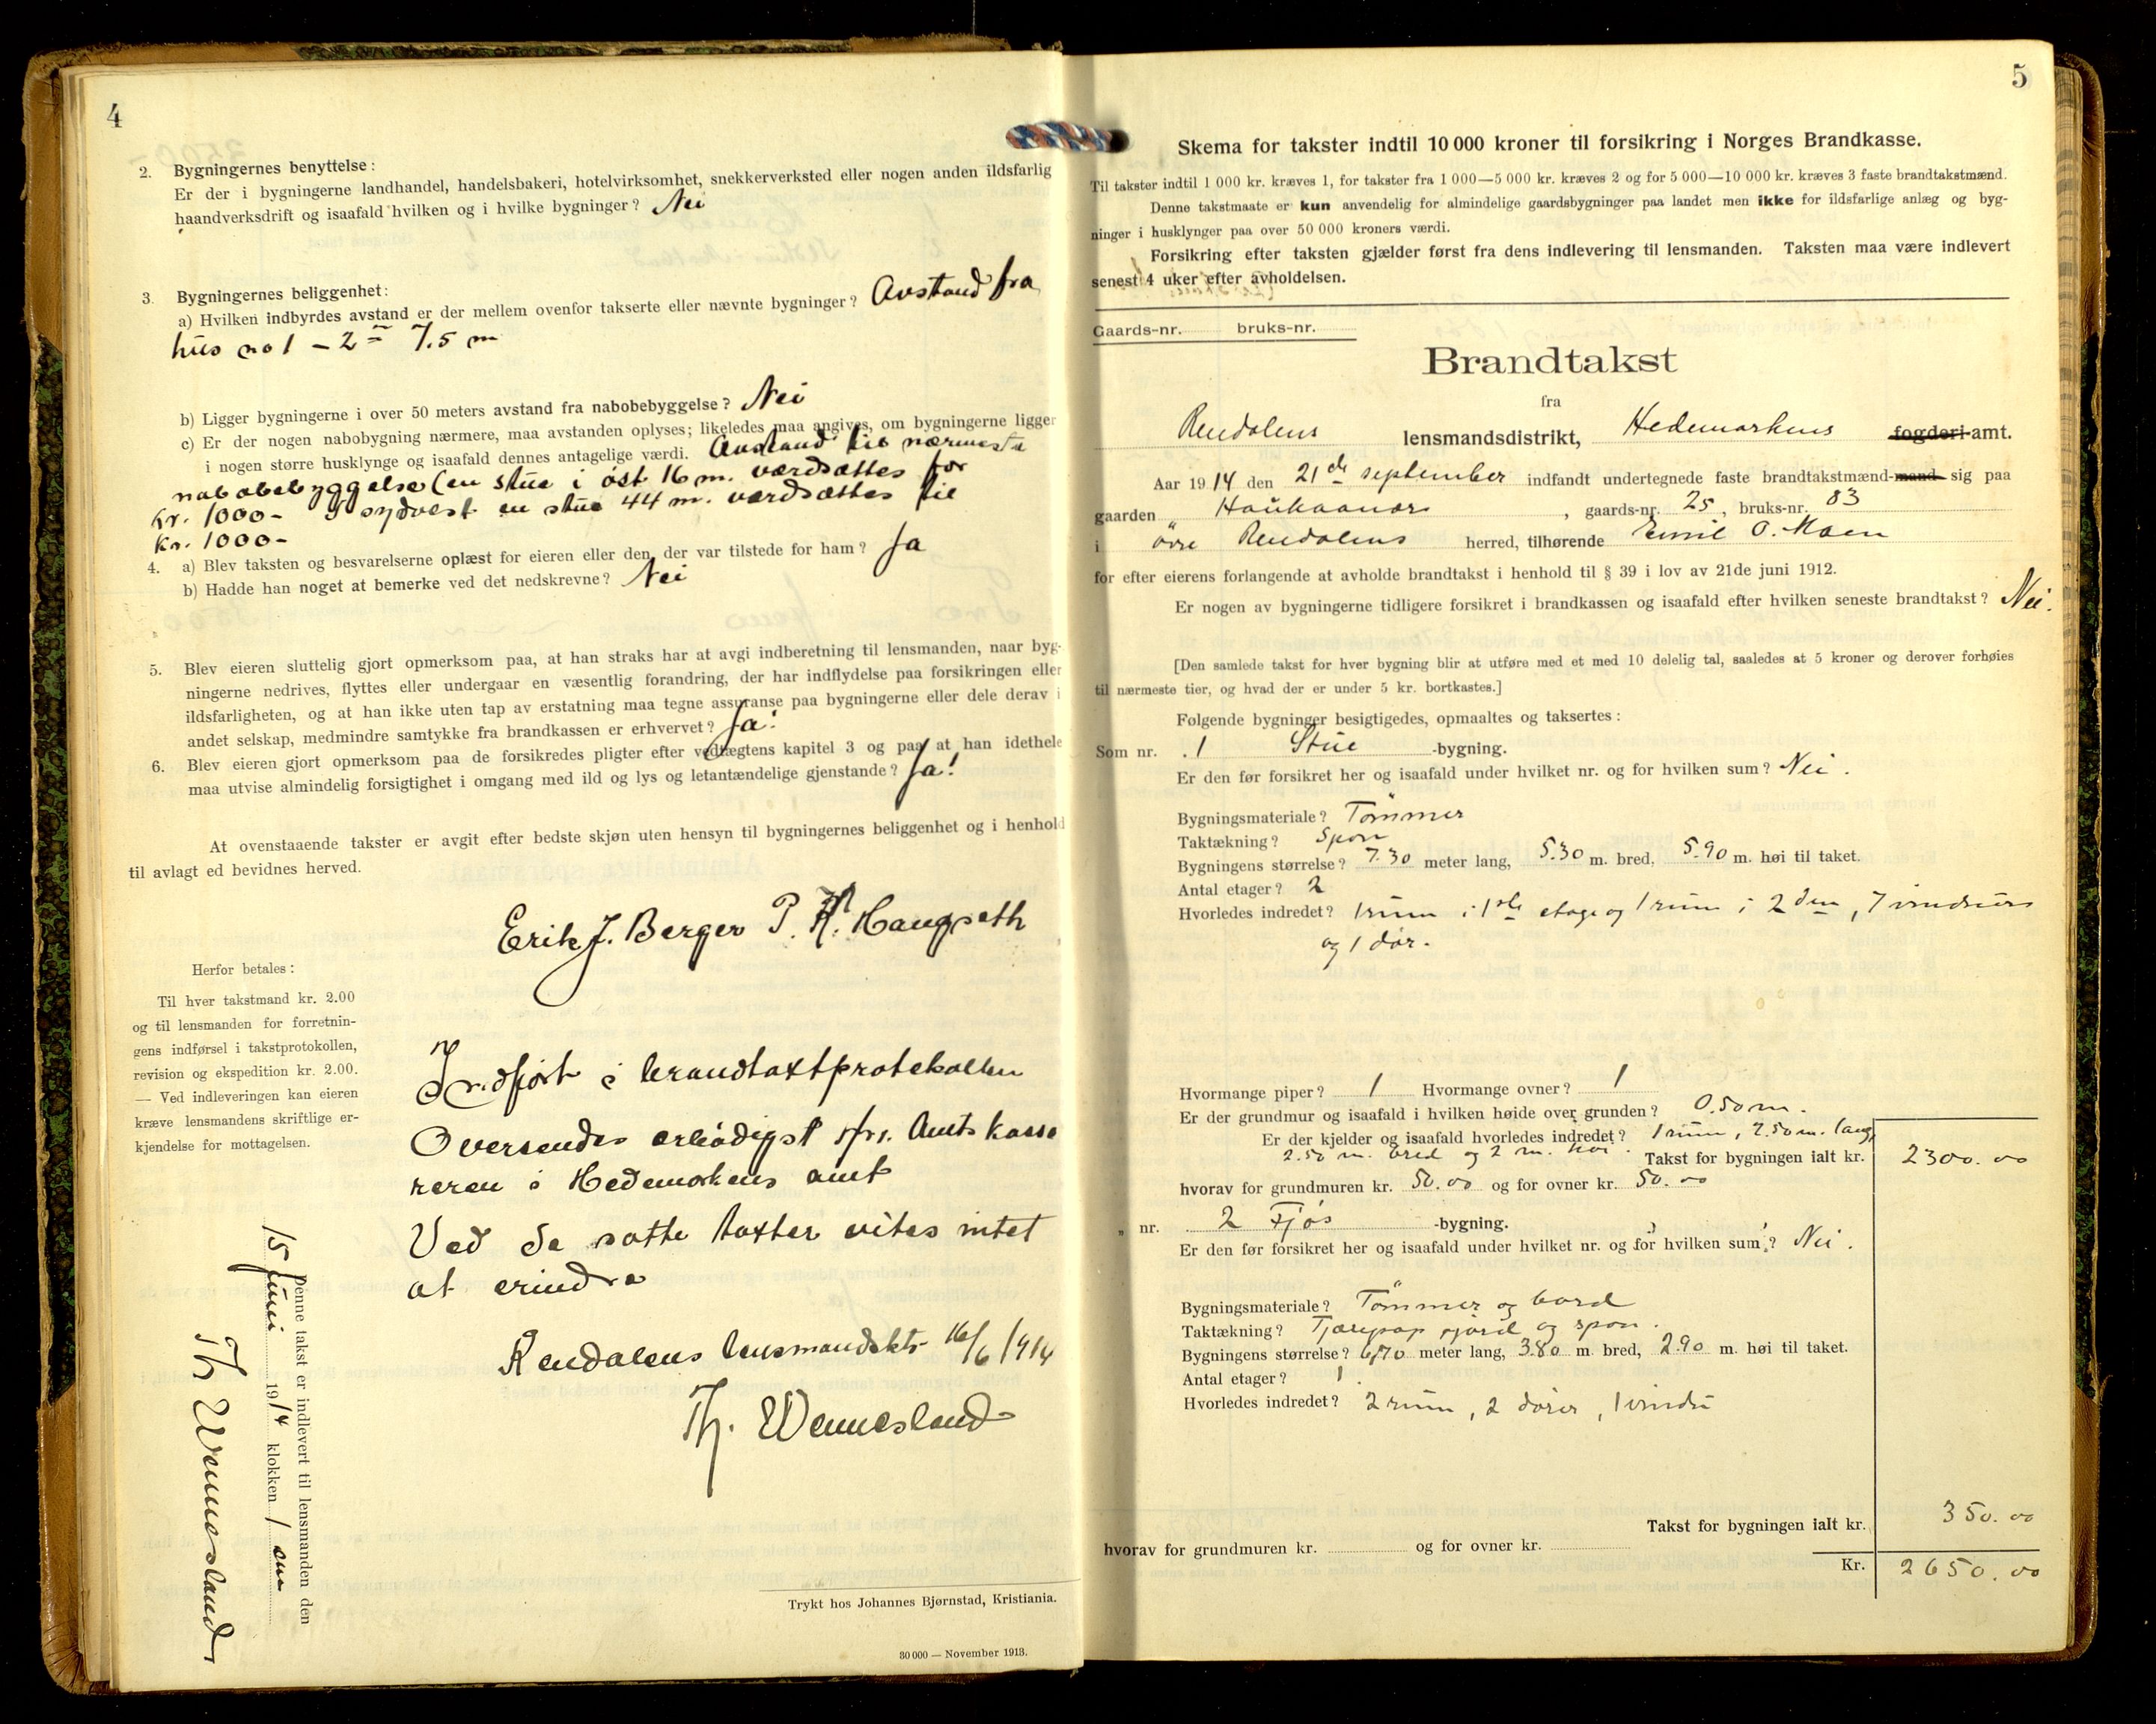 4
2. Bygningernes benyttelse:
Er der i bygningerne landhandel, handelsbakeri, hotelvirksomhet, snekkerverksted eller nogen anden ildsfarlig
haandverksdrift og isaafald hvilken og i hvilke bygninger? Nei
3. Bygningernes beliggenhet:
a) Hvilken indbyrdes avstand er der mellem ovenfor takserte eller nævnte bygninger? Avstand fra
hus no 1 - 2 = 7.5 m
b) Ligger bygningerne i over 50 meters avstand fra nabobebyggelse? Nei
c) Er der nogen nabobygning nærmere, maa avstanden oplyses; likeledes maa angives, om bygningerne ligger
i nogen større husklynge og isaafald dennes antagelige værdi. Avstand til nærmeste
nabobebyggelse (en stue i øst 16 m. værdsættes for
kr. 1000- I sydvest en stue 44 m. værdsættes til
kr. 1000-
4. a) Blev taksten og besvarelserne oplæst for eieren eller den, der var tilstede for ham? Ja
b) Hadde han noget at bemerke ved det nedskrevne? Nei
5. Blev eieren sluttelig gjort opmerksom paa, at han straks har at avgi indberetning til lensmanden, naar byg-
ningerne nedrives, flyttes eller undergaar en væsentlig forandring, der har indflydelse paa forsikringen eller
ildsfarligheten, og at han ikke uten tap av erstatning maa tegne assuranse paa bygningerne eller dele derav i
andet selskap, medmindre samtykke fra brandkassen er erhvervet? Ja!
6. Blev eieren gjort opmerksom paa de forsikredes pligter efter vedtægtens kapitel 3 og paa at han idethele
maa utvise almindelig forsigtighet i omgang med ild og lys og letantændelige gjenstande? Ja!
At ovenstaaende takster er avgit efter bedste skjøn uten hensyn til bygningernes beliggenhet og i henhold
til avlagt ed bevidnes herved.
Erik J. Berger P. H. Haugseth
Herfor betales:
Til hver takstmand kr. 2.00
og til lensmanden for forretnin-
gens indførsel i takstprotokollen,
revision og ekspedition kr. 2.00.
— Ved indleveringen kan eieren
kræve lensmandens skriftlige er-
kjendelse for mottagelsen.
Indført i brandtaxtprotokollen
Oversendes ærbødigst hr. Amtskasse
reren i Hedemarkens amt
Ved de satte taxter vites intet
at erindre
Rendalens lensmandsktr 16/6 1914
Th. Wennesland
Denne takst er indlevert til lensmanden den
15 juni 1914 klokken 1 em
Th Wennesland
Trykt hos Johannes Bjørnstad, Kristiania.
30 000 — November 1913.
5
Skema for takster indtil 10 000 kroner til forsikring i Norges Brandkasse.
Til takster indtil 1 000 kr. kræves 1, for takster fra 1 000—5 000 kr. kræves 2 og for 5 000—10 000 kr. kræves 3 faste brandtakstmænd.
Denne takstmaate er kun anvendelig for almindelige gaardsbygninger paa landet men ikke for ildsfarlige anlæg og byg-
ninger i husklynger paa over 50 000 kroners værdi.
Forsikring efter taksten gjælder først fra dens indlevering til lensmanden. Taksten maa være indlevert
senest 4 uker efter avholdelsen.
Gaards-nr. bruks-nr.
Brandtakst
fra
Rendalens lensmandsdistrikt, Hedemarkens fogderi-amt.
Aar 1914 den 21de september indfandt undertegnede faste brandtakstmænd-mand sig paa
gaarden , gaards-nr. 25, bruks-nr. 83
i øvre Rendalens herred, tilhørende Emil O. Moen
for efter eierens forlangende at avholde brandtakst i henhold til § 39 i lov av 21de juni 1912.
Er nogen av bygningerne tidligere forsikret i brandkassen og isaafald efter hvilken seneste brandtakst? Nei.
[Den samlede takst for hver bygning blir at utføre med et med 10 delelig tal, saaledes at 5 kroner og derover forhøies
til nærmeste tier, og hvad der er under 5 kr. bortkastes.]
Følgende bygninger besigtigedes, opmaaltes og taksertes:
Som nr. 1 Stue -bygning.
Er den før forsikret her og isaafald under hvilket nr. og for hvilken sum? Nei.
Bygningsmateriale? Tømmer
Taktækning? Spon
Bygningens størrelse? 7.30 meter lang, 5.30 m. bred, 5.90 m. høi til taket.
Antal etager? 2
Hvorledes indredet? 1 rum i 1ste etage og 1 rum i 2den, 7 vinduer
og 1 dør.
Hvormange piper? 1 Hvormange ovner? 1
Er der grundmur og isaafald i hvilken høide over grunden? 0.50 m.
Er der kjelder og isaafald hvorledes indredet? 1 rum, 2.50 m. lang,
2.50 m. bred og 2 m. høi. Takst for bygningen ialt kr. 2300.00
hvorav for grundmuren kr. 50.00 og for ovner kr. 50.00
„ nr. 2 Fjøs -bygning.
Er den før forsikret her og isaafald under hvilket nr. og for hvilken sum? Nei.
Bygningsmateriale? Tømmer og bord
Taktækning? Tjærepap og spon.
Bygningens størrelse? 6,70 meter lang, 3.80 m. bred, 2.90 m. høi til taket.
Antal etager? 1
Hvorledes indredet? 2 rum, 2 dører, 1 vindu
Takst for bygningen ialt kr. 350.00
hvorav for grundmuren kr. og for ovner kr.
Kr. 2650.00